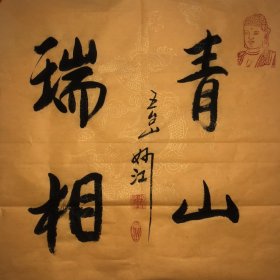 青山
瑞相
五台山妙江